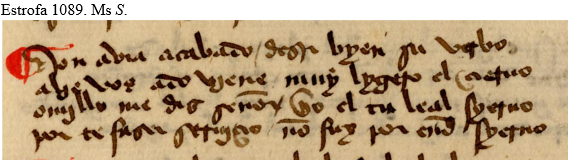 Estrofa 1089. Ms S.
Non avia acabado desir byen su verbo
ahe vos ado viene muy lygero el çieruo
omillo me diz señor yo el tu leal syeruo
por te faser seruiçio nõ fuy por end syeruo